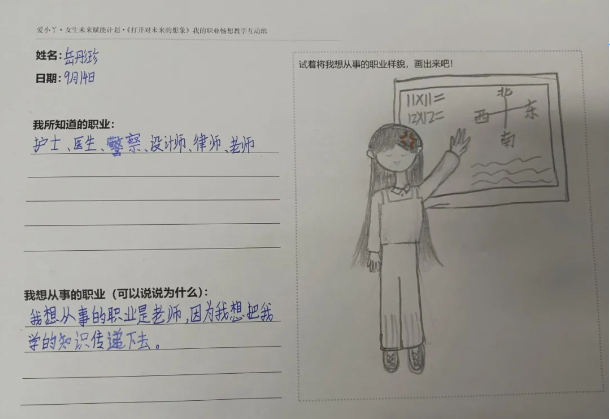 爱小丫·女生未来赋能计划·《打开对未来的想象》我的职业畅想教学互动纸
姓名:岳彤珍
日期:9月14日
我所知道的职业:
护士、医生、警察、设计师、律师、老师
我想从事的职业(可以说说为什么):
我想从事的职业是老师,因为我想把我
学的知识传递下去。
试着将我想从事的职业样貌,画出来吧!
11X11=
12X12=
北
西 东
南